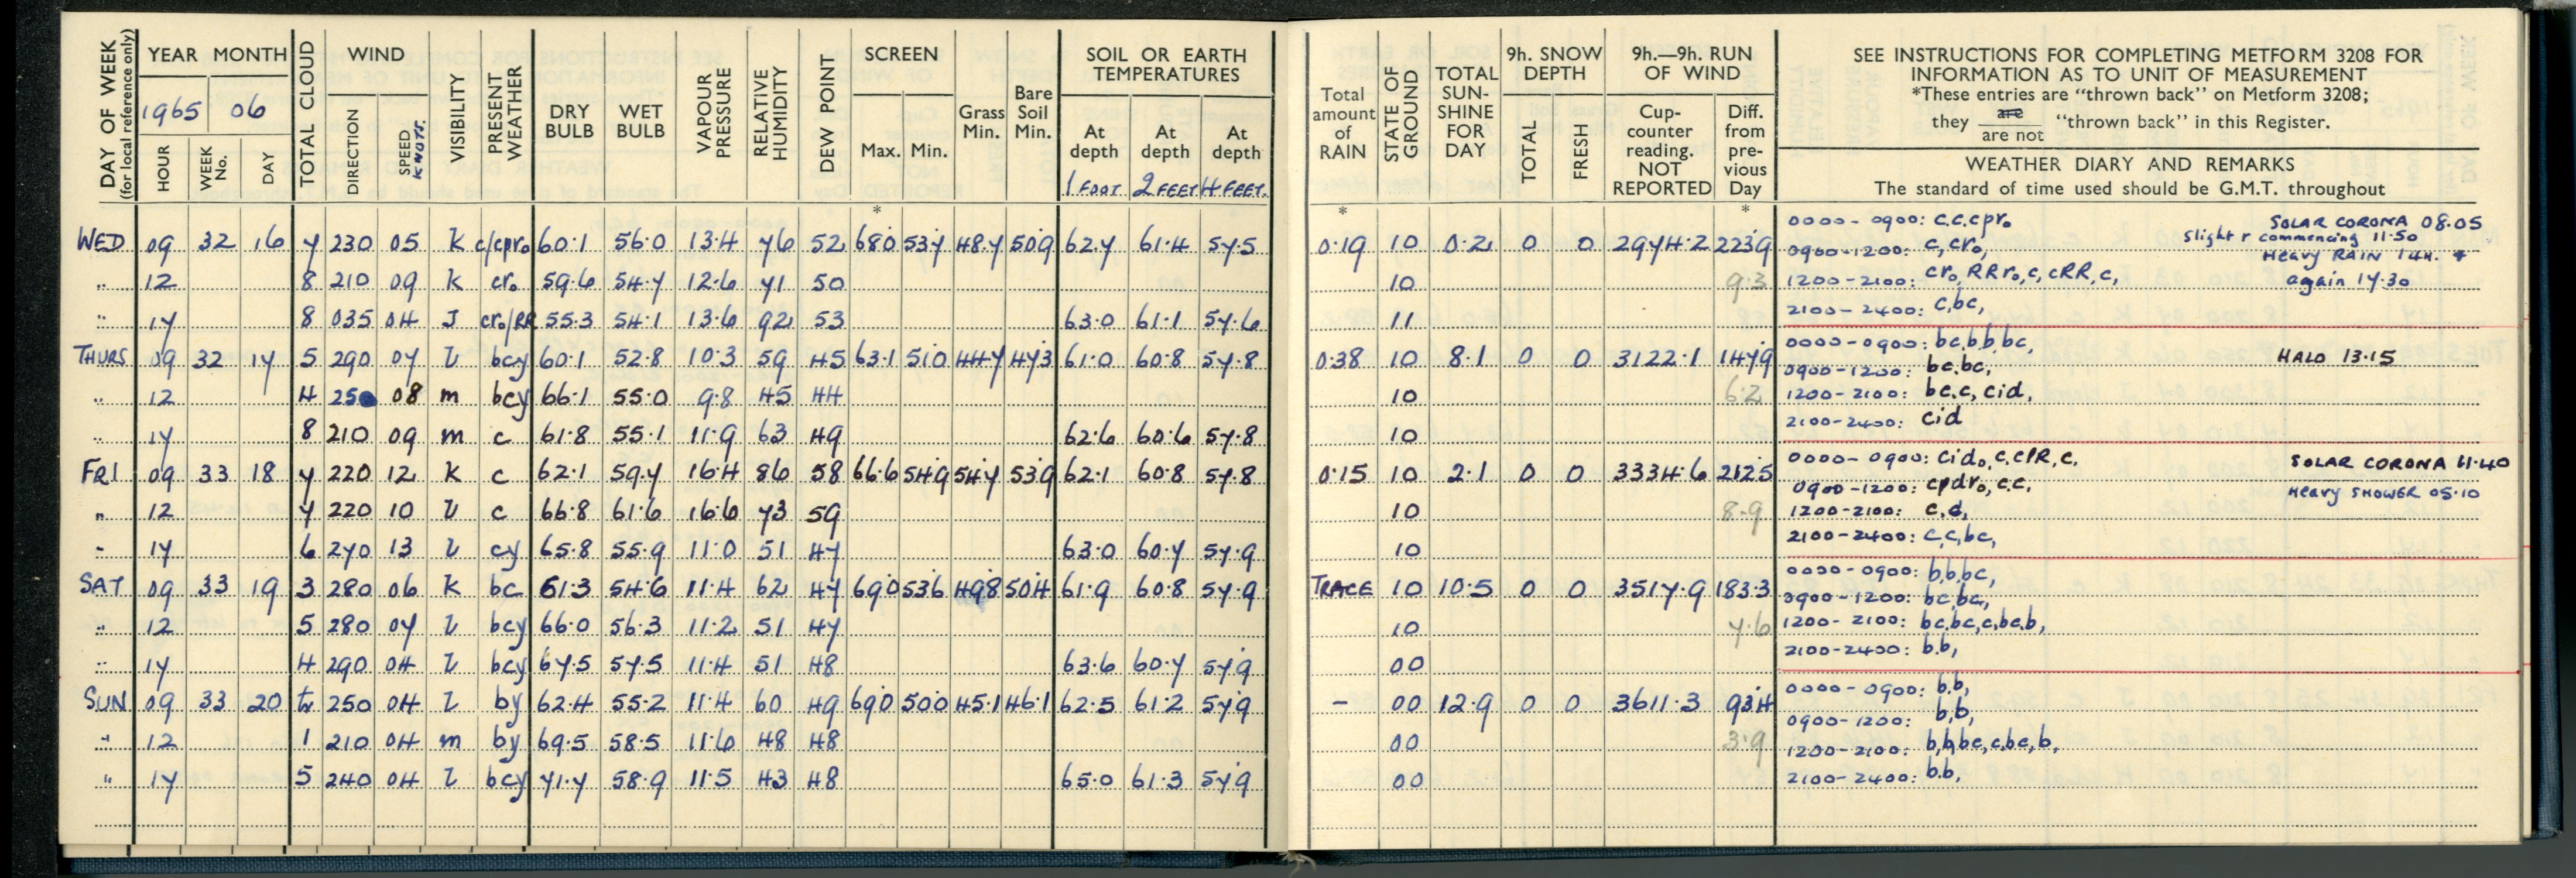 DAY OF WEEK (for local reference only) YEAR MONTH TOTAL CLOUD WIND VISIBILITY PRESENT WEATHER DRY BULB WET BULB VAPOUR PRESSURE RELATIVE HUMIDITY DEW POINT SCREEN Grass Min. Bare Soil Min. SOIL OR EARTH TEMPERATURES
1965 06
HOUR WEEK No. DAY DIRECTION SPEED KNOTS. Max. Min. At depth At depth At depth
1 FOOT 2 FEET 4 FEET.
Total amount of RAIN STATE OF GROUND TOTAL SUN-SHINE FOR DAY 9h. SNOW DEPTH 9h.—9h. RUN OF WIND
TOTAL FRESH Cup-counter reading. NOT REPORTED Diff. from pre-vious Day
SEE INSTRUCTIONS FOR COMPLETING METFORM 3208 FOR
INFORMATION AS TO UNIT OF MEASUREMENT
*These entries are "thrown back" on Metform 3208;
they are are not "thrown back" in this Register.
WEATHER DIARY AND REMARKS
The standard of time used should be G.M.T. throughout
* * *
WED 09 32 16 7 230 05 K c/cpr₀ 60.1 56.0 13.4 76 52 68.0 53.7 48.7 50.9 62.7 61.4 57.5 0.19 10 0.2 0 0 2974.2 223.9
0000 - 0900: c.c.cpr₀ SOLAR CORONA 08.05
0900-1200: c, cr₀, Slight r commencing 11.50
.. 12 8 210 09 K cr₀ 59.6 54.7 12.6 71 50 10 9.3
1200-2100: cr₀, RRr₀, c, cRR, c, HEAVY RAIN 14H. + again 17.30
.. 17 8 035 04 J cr₀/RR 55.3 54.1 13.6 92 53 63.0 61.1 57.6 11
2100-2400: c,bc,
THURS 09 32 17 5 290 07 l bcy 60.1 52.8 10.3 59 45 63.1 51.0 44.7 47.3 61.0 60.8 57.8 0.38 10 8.1 0 0 3122.1 147.9
0000-0900: bc,b,b,bc, HALO 13.15
0900-1200: bc.bc,
.. 12 4 250 08 m bcy 66.1 55.0 9.8 45 44 10 6.2
1200-2100: bc.c, cid,
.. 17 8 210 09 m c 61.8 55.1 11.9 63 49 62.6 60.6 57.8 10
2100-2400: cid
FRI 09 33 18 7 220 12 K c 62.1 59.7 16.4 86 58 66.6 54.9 54.7 53.9 62.1 60.8 57.8 0.15 10 2.1 0 0 3334.6 212.5
0000-0900: cid₀, c, cPR, c. SOLAR CORONA 11.40
0900-1200: cpdr₀, c.c. HEAVY SHOWER 05.10
" 12 7 220 10 l c 66.8 61.6 16.6 73 59 10 8.9
1200-2100: c,c,
- 17 6 270 13 l cy 65.8 55.9 11.0 51 47 63.0 60.7 57.9 10
2100-2400: c,c,bc,
SAT 09 33 19 3 280 06 K bc 61.3 54.6 11.4 62 47 69.0 53.6 49.8 50.4 61.9 60.8 57.9 TRACE 10 10.5 0 0 3517.9 183.3
0000-0900: b,b,bc,
0900-1200: bc,bc,
.. 12 5 280 07 l bcy 66.0 56.3 11.2 51 47 10 7.6
1200-2100: bc,bc,c,bc,b,
.. 17 4 290 04 l bcy 67.5 57.5 11.4 51 48 63.6 60.7 57.9 00
2100-2400: b.b,
SUN 09 33 20 tr 250 04 l by 62.4 55.2 11.4 60 49 69.0 50.0 45.1 46.1 62.5 61.2 57.9 - 00 12.9 0 0 3611.3 93.4
0000-0900: b.b,
0900-1200: b,b,
" 12 1 210 04 m by 69.5 58.5 11.6 48 48 00 3.9
1200-2100: b,b,bc,c,bc,b,
" 17 5 240 04 l bcy 71.7 58.9 11.5 43 48 65.0 61.3 57.9 00
2100-2400: b.b,